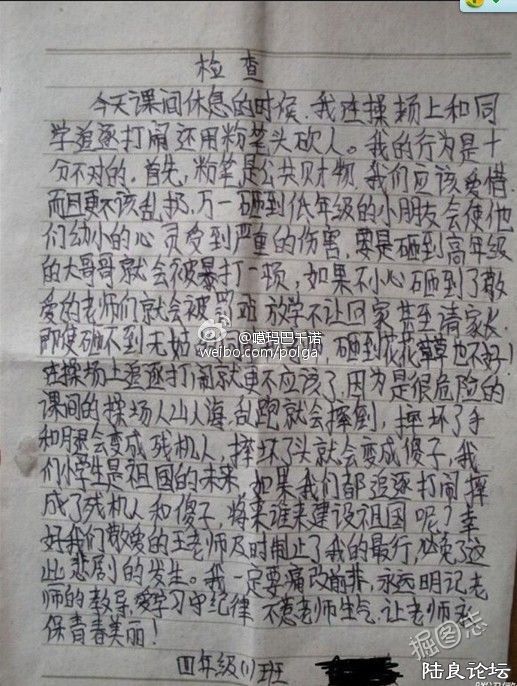 检查
今天课间休息的时候,我在操场上和同
学追逐打闹还用粉笔头砍人。我的行为是十
分不对的。首先,粉笔是公共财物,我们应该爱惜
而且更不该乱扔,万一砸到低年级的小朋友会使他
们幼小的心灵受到严重的伤害,要是砸到高年级
的大哥哥就会被暴打一顿,如果不小心砸到了敬
爱的老师们就会被罚站 放学不让回家甚至请家长
即使砸不到无 砸到花花草草也不好!
在操场上追逐打闹就更不应该了,因为是很危险的
课间的操场人山人海,乱跑就会摔倒,摔坏了手
和腿会变成残机人,摔坏了头就会变成傻子,我
们小学生是祖国的未来,如果我们都追逐打闹摔
成了残机人和傻子,将来谁来建设祖国呢?幸
好我们敬爱的王老师及时制止了我的最行,必免了这
此悲剧的发生。我一定要痛改前非,永远明记老
师的教导,爱学习守纪律 不惹老师生气,让老师永
保青春美丽!
四年级(1)班
@噶玛巴千诺
weibo.com/polga
掘图志
陆良论坛